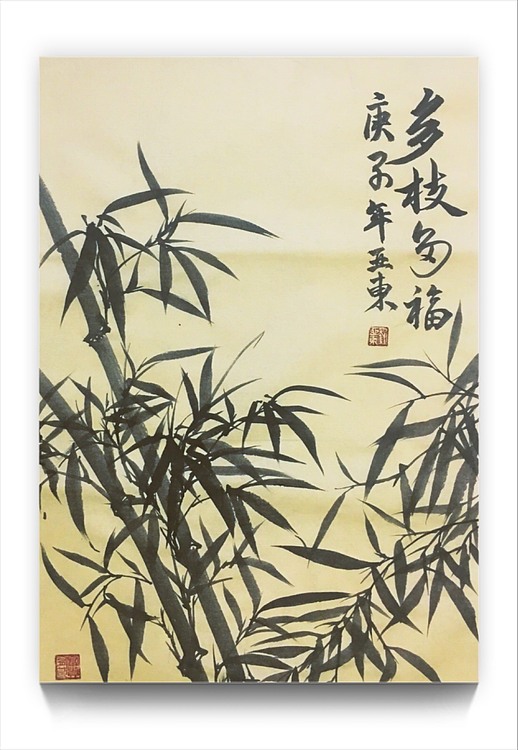 多枝多福
庚子年亚東